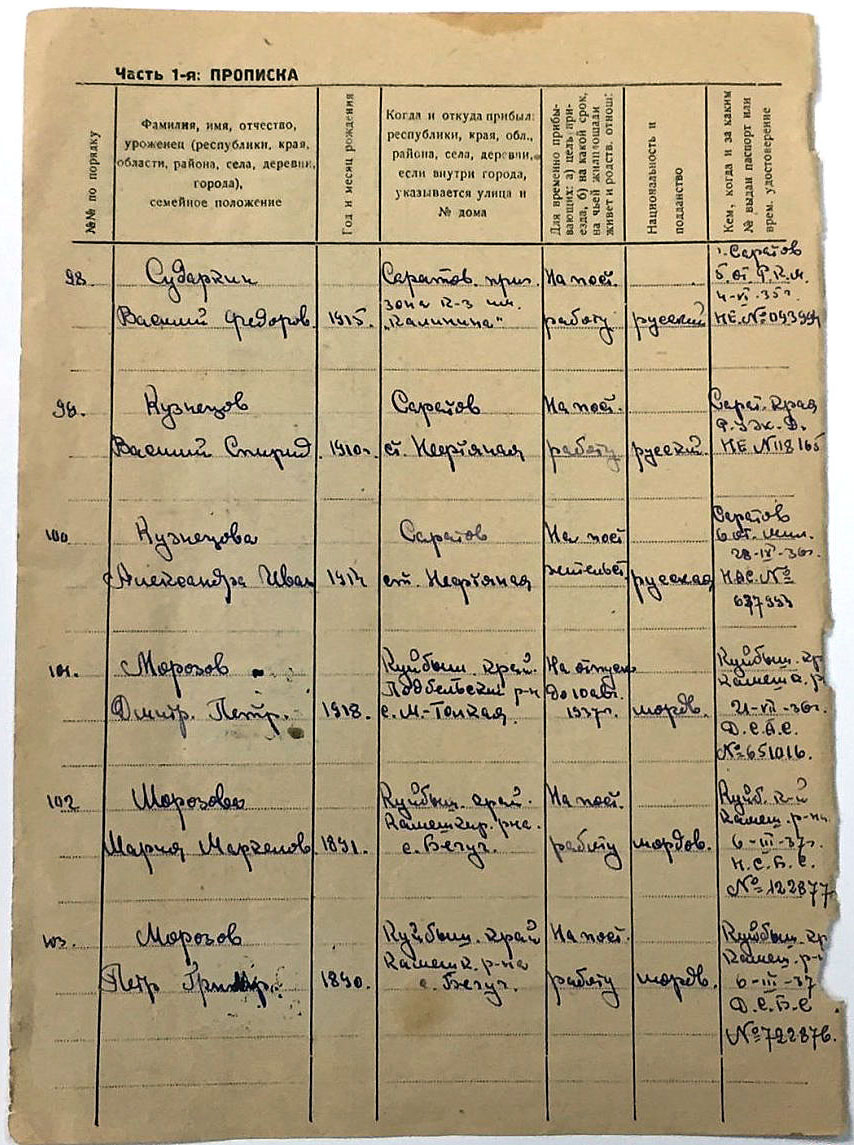 Часть 1-я: ПРОПИСКА
№№ по порядку
Фамилия, имя, отчество,
уроженец (республики, края,
области, района, села, деревни,
города),
семейное положение
Год и месяц рождения
Когда и откуда прибыл:
республики, края, обл.,
района, села, деревни,
если внутри города,
указывается улица и
№ дома
Для временно прибы-
вающих: а) цель при-
езда, б) на какой срок,
на чьей жилплощади
живет и родств. отнош:
Национальность и
подданство
Кем, когда и за каким
№ выдан паспорт или
врем. удостоверение
98. Сударкин
Василий Федоров.
1915.
Саратов. приг.
зона к-з им.
„Калинина"
На пост.
работу
русский
г. Саратов
5. от. Р.К.М.
4-VI-35г.
НЕ.№
Кузнецов
Василий Спирид.
1910г.
Саратов
ст. Нефтяная
На пост.
работу
русский.
Сарат. края
НЕ №118165
100. Кузнецова
Александра Иван
Саратов
ст. Нефтяная
На пост
жительст
русская
Саратов
6 от. мил.
28-IV-36г.
№
101. Морозов
Дмитр. Петр.
1918.
Куйбыш. край.
Подбельский р-н
с. М.-Толкая.
На отпуск
до 10 авг.
1937г.
мордв.
Куйбыш. кр
Камешк. р
21-VII-36г.
№651016.
102 Морозова
Мария Маркелов.
1891.
Куйбыш. край.
Камешкир. р-на.
с. Бегуч.
На пост.
работу
мордов.
Куйб. к-й
Камеш. р-на
6-III-37г.
Н.С.Б.С.
№122877
103. Морозов
Петр
1890.
Куйбыш. край
Камешк. р-на
с. Бегуч.
На пост.
работу
мордв.
Куйбыш. кр
Камеш. р-
6-III-37
Д.С.Б.С
№722876.